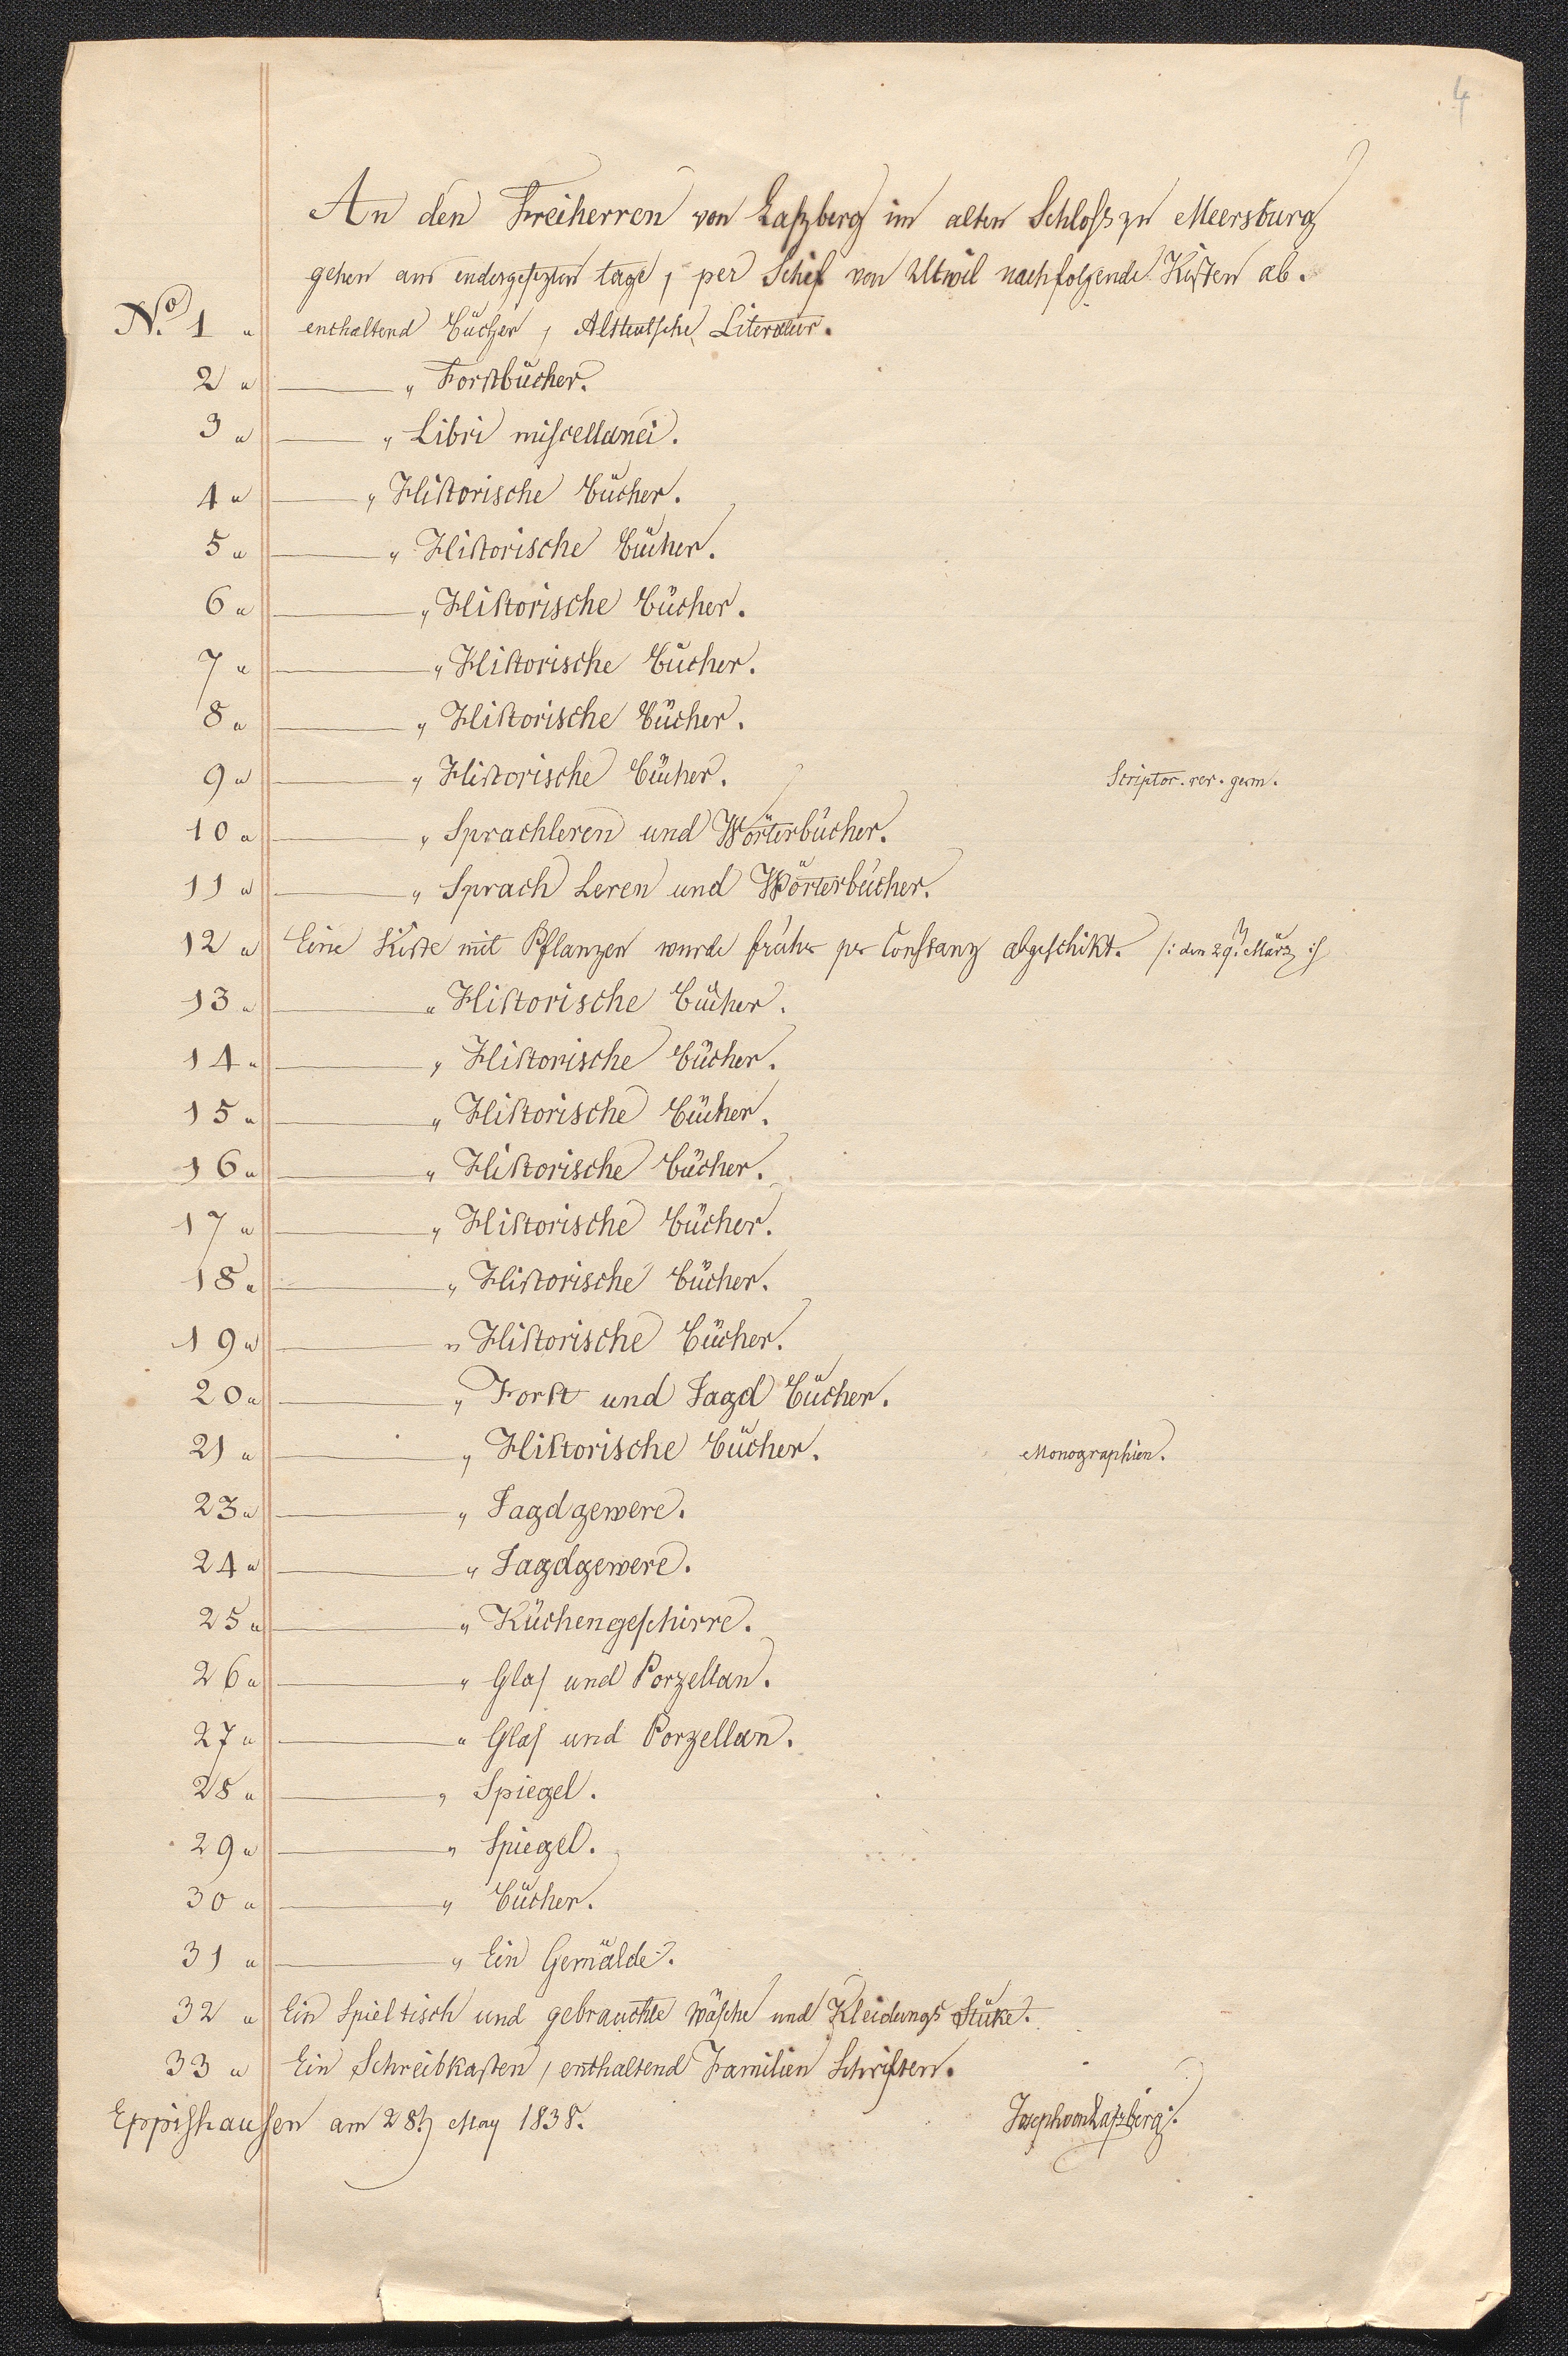 4
An den Freiherren von Laszberg im alten Schlosz zu Meersburg
gehen am endesgesezten tage, per Schif von Utwil nachfolgende Kisten ab.
No. 1 " enthaltend Bücher, Altteutsche Literatur.
2 " ——— " Forstbücher.
3 " ——— " Libri miscellanei.
4 " ——— " Historische Bücher.
5 " ——— " Historische Bücher.
6 " ——— " Historische Bücher.
7 " ——— " Historische Bücher.
8 " ——— " Historische Bücher.
9 " ——— " Historische Bücher. Scriptor. rer. germ.
10 " ——— " Sprachleren und Wörterbücher.
11 " ——— " Sprach Leren und Wörterbücher.
12 " Eine Kiste mit Pflanzen wurde früher per Constanz abgeschikt. /: den 29. März :/
13 " ——— " Historische Bücher.
14 " ——— " Historische Bücher.
15 " ——— " Historische Bücher.
16 " ——— " Historische Bücher.
17 " ——— " Historische Bücher.
18 " ——— " Historische Bücher.
19 " ——— " Historische Bücher.
20 " ——— " Forst und Jagd Bücher.
21 " ——— " Historische Bücher. Monographien.
23 " ——— " Jagdgewere.
24 " ——— " Jagdgewere.
25 " ——— " Küchengeschirre.
26 " ——— " Glas und Porzellan.
27 " ——— " Glas und Porzellan.
28 " ——— " Spiegel.
29 " ——— " Spiegel.
30 " ——— " Bücher.
31 " ——— " Ein Gemälde.
32 " Ein Spieltisch und gebrauchte Wäsche und Kleidungs Stüke.
33 " Ein Schreibkasten, enthaltend Familien Schriften.
Eppishausen am 28t. May 1838. Joseph von Laszberg.